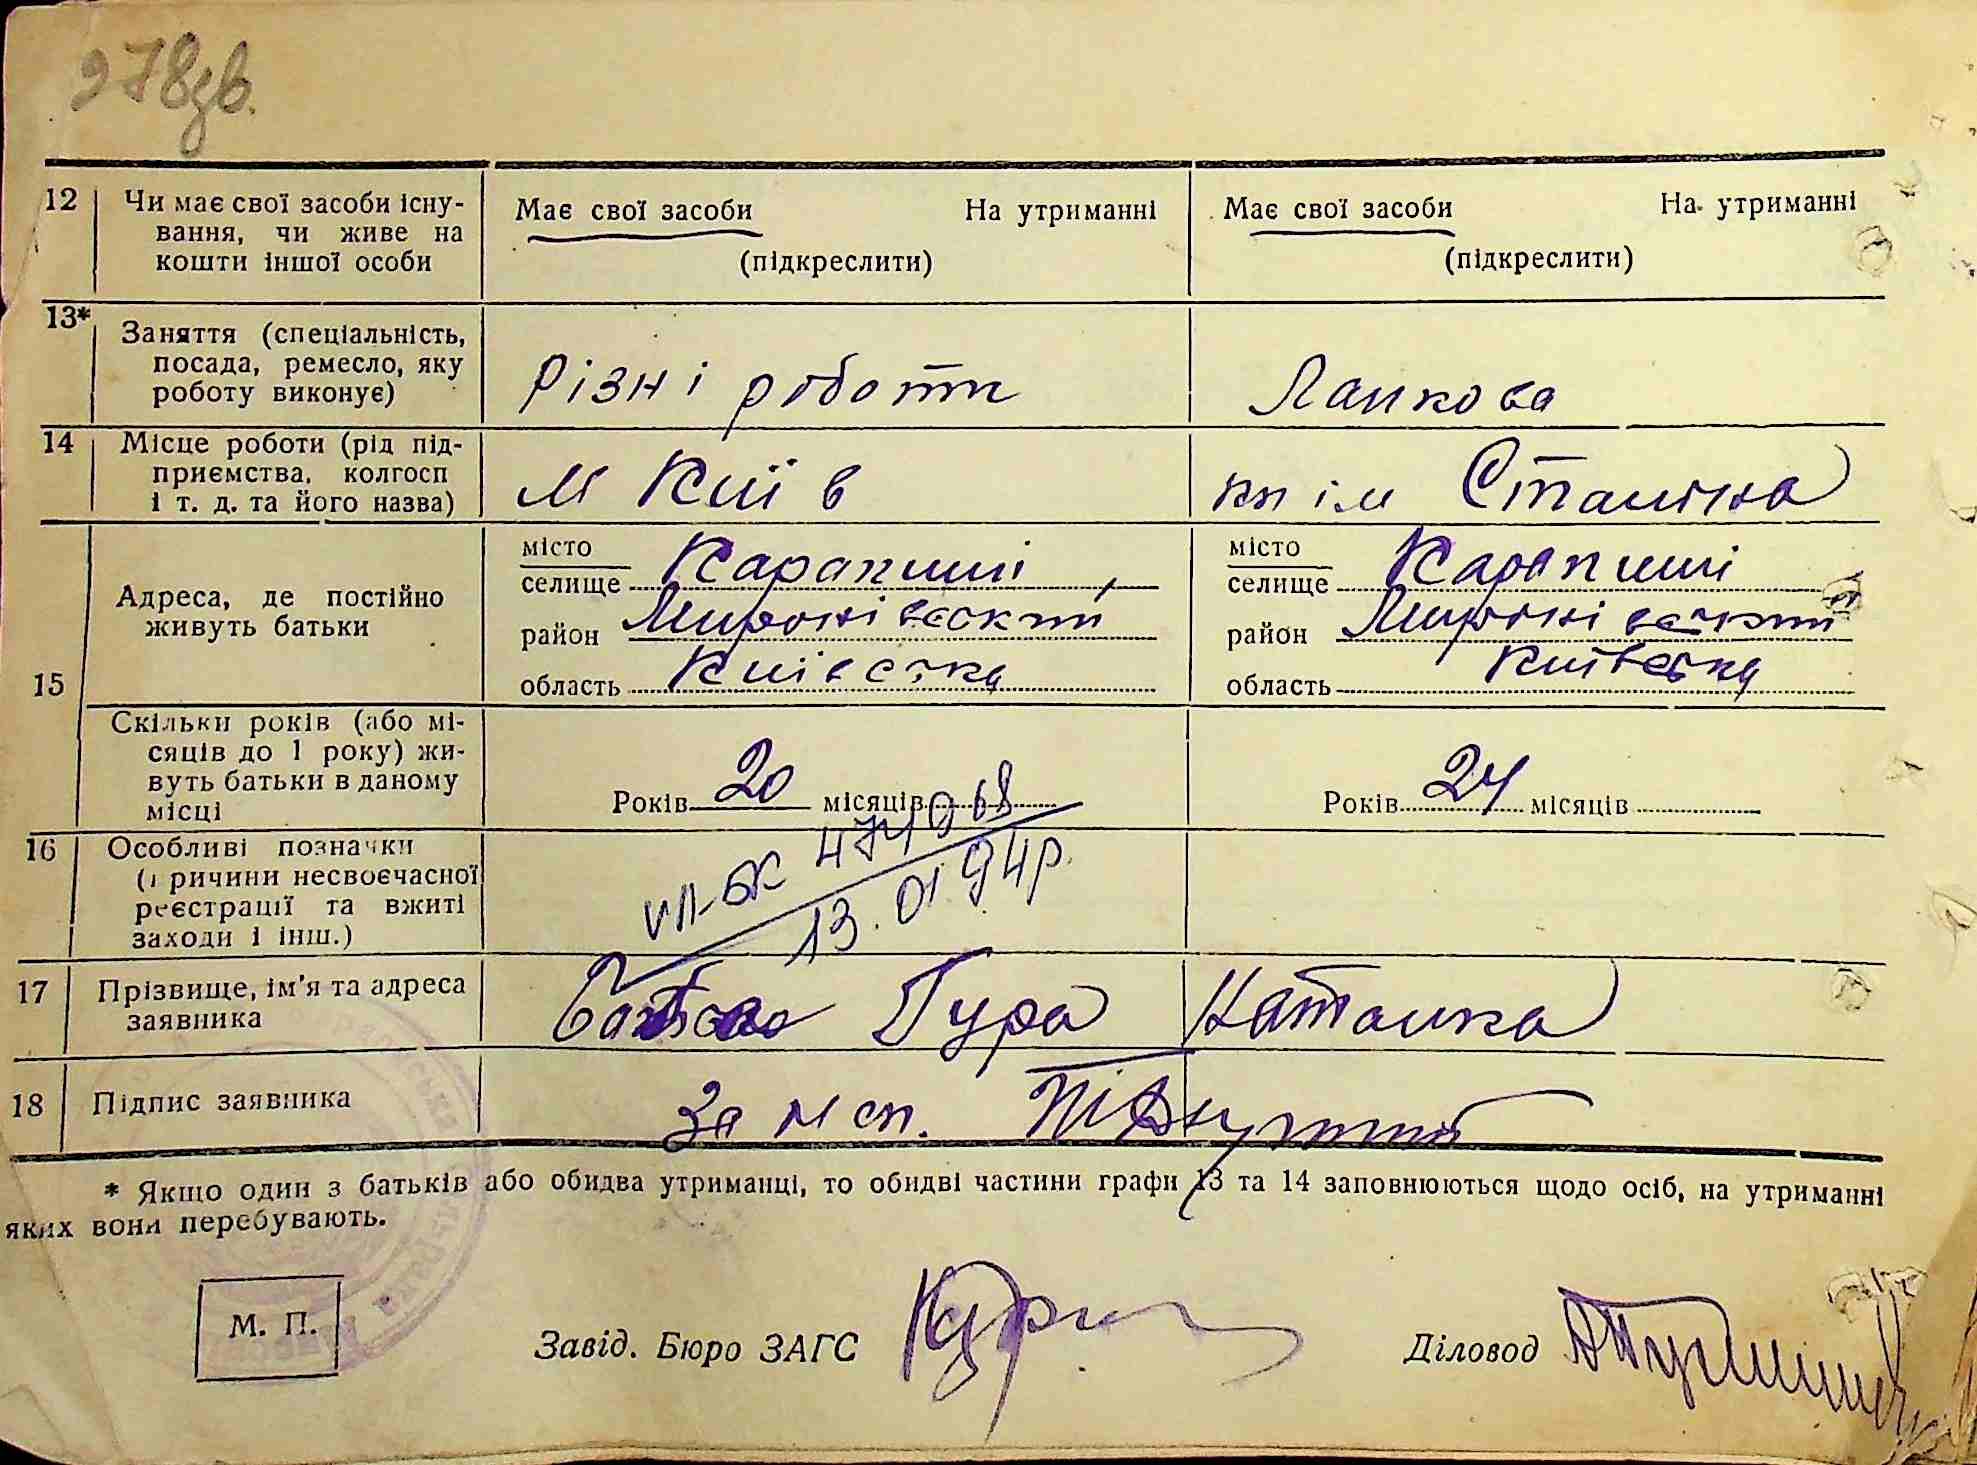 278зв.
12 Чи має свої засоби існу-
вання, чи живе на
кошти іншої особи
Має свої засоби На утриманні
(підкреслити)
Має свої засоби На утриманні
(підкреслити)
13* Заняття (спеціальність,
посада, ремесло, яку
роботу виконує)
Різні роботи
Ланкова
14 Місце роботи (рід під-
приємства, колгосп
і т. д. та його назва)
м Київ
кп ім Сталіна
15 Адреса, де постійно
живуть батьки
місто
селище Карапиші
район Миронівський
область Київська
місто
селище Карапиші
район Миронівський
область Київська
Скільки років (або мі-
сяців до 1 року) жи-
вуть батьки в даному
місці
Років 20 місяців
Років 24 місяців
16 Особливі позначки
(причини несвоєчасної
реєстрації та вжиті
заходи і інш.)
VII-БК 474968
13.01.94р.
17 Прізвище, ім'я та адреса
заявника
Гура Наталка
18 Підпис заявника
За неп.
* Якщо один з батьків або обидва утриманці, то обидві частини графи 13 та 14 заповнюються щодо осіб, на утриманні
яких вони перебувають.
М. П.
Завід. Бюро ЗАГС
Діловод